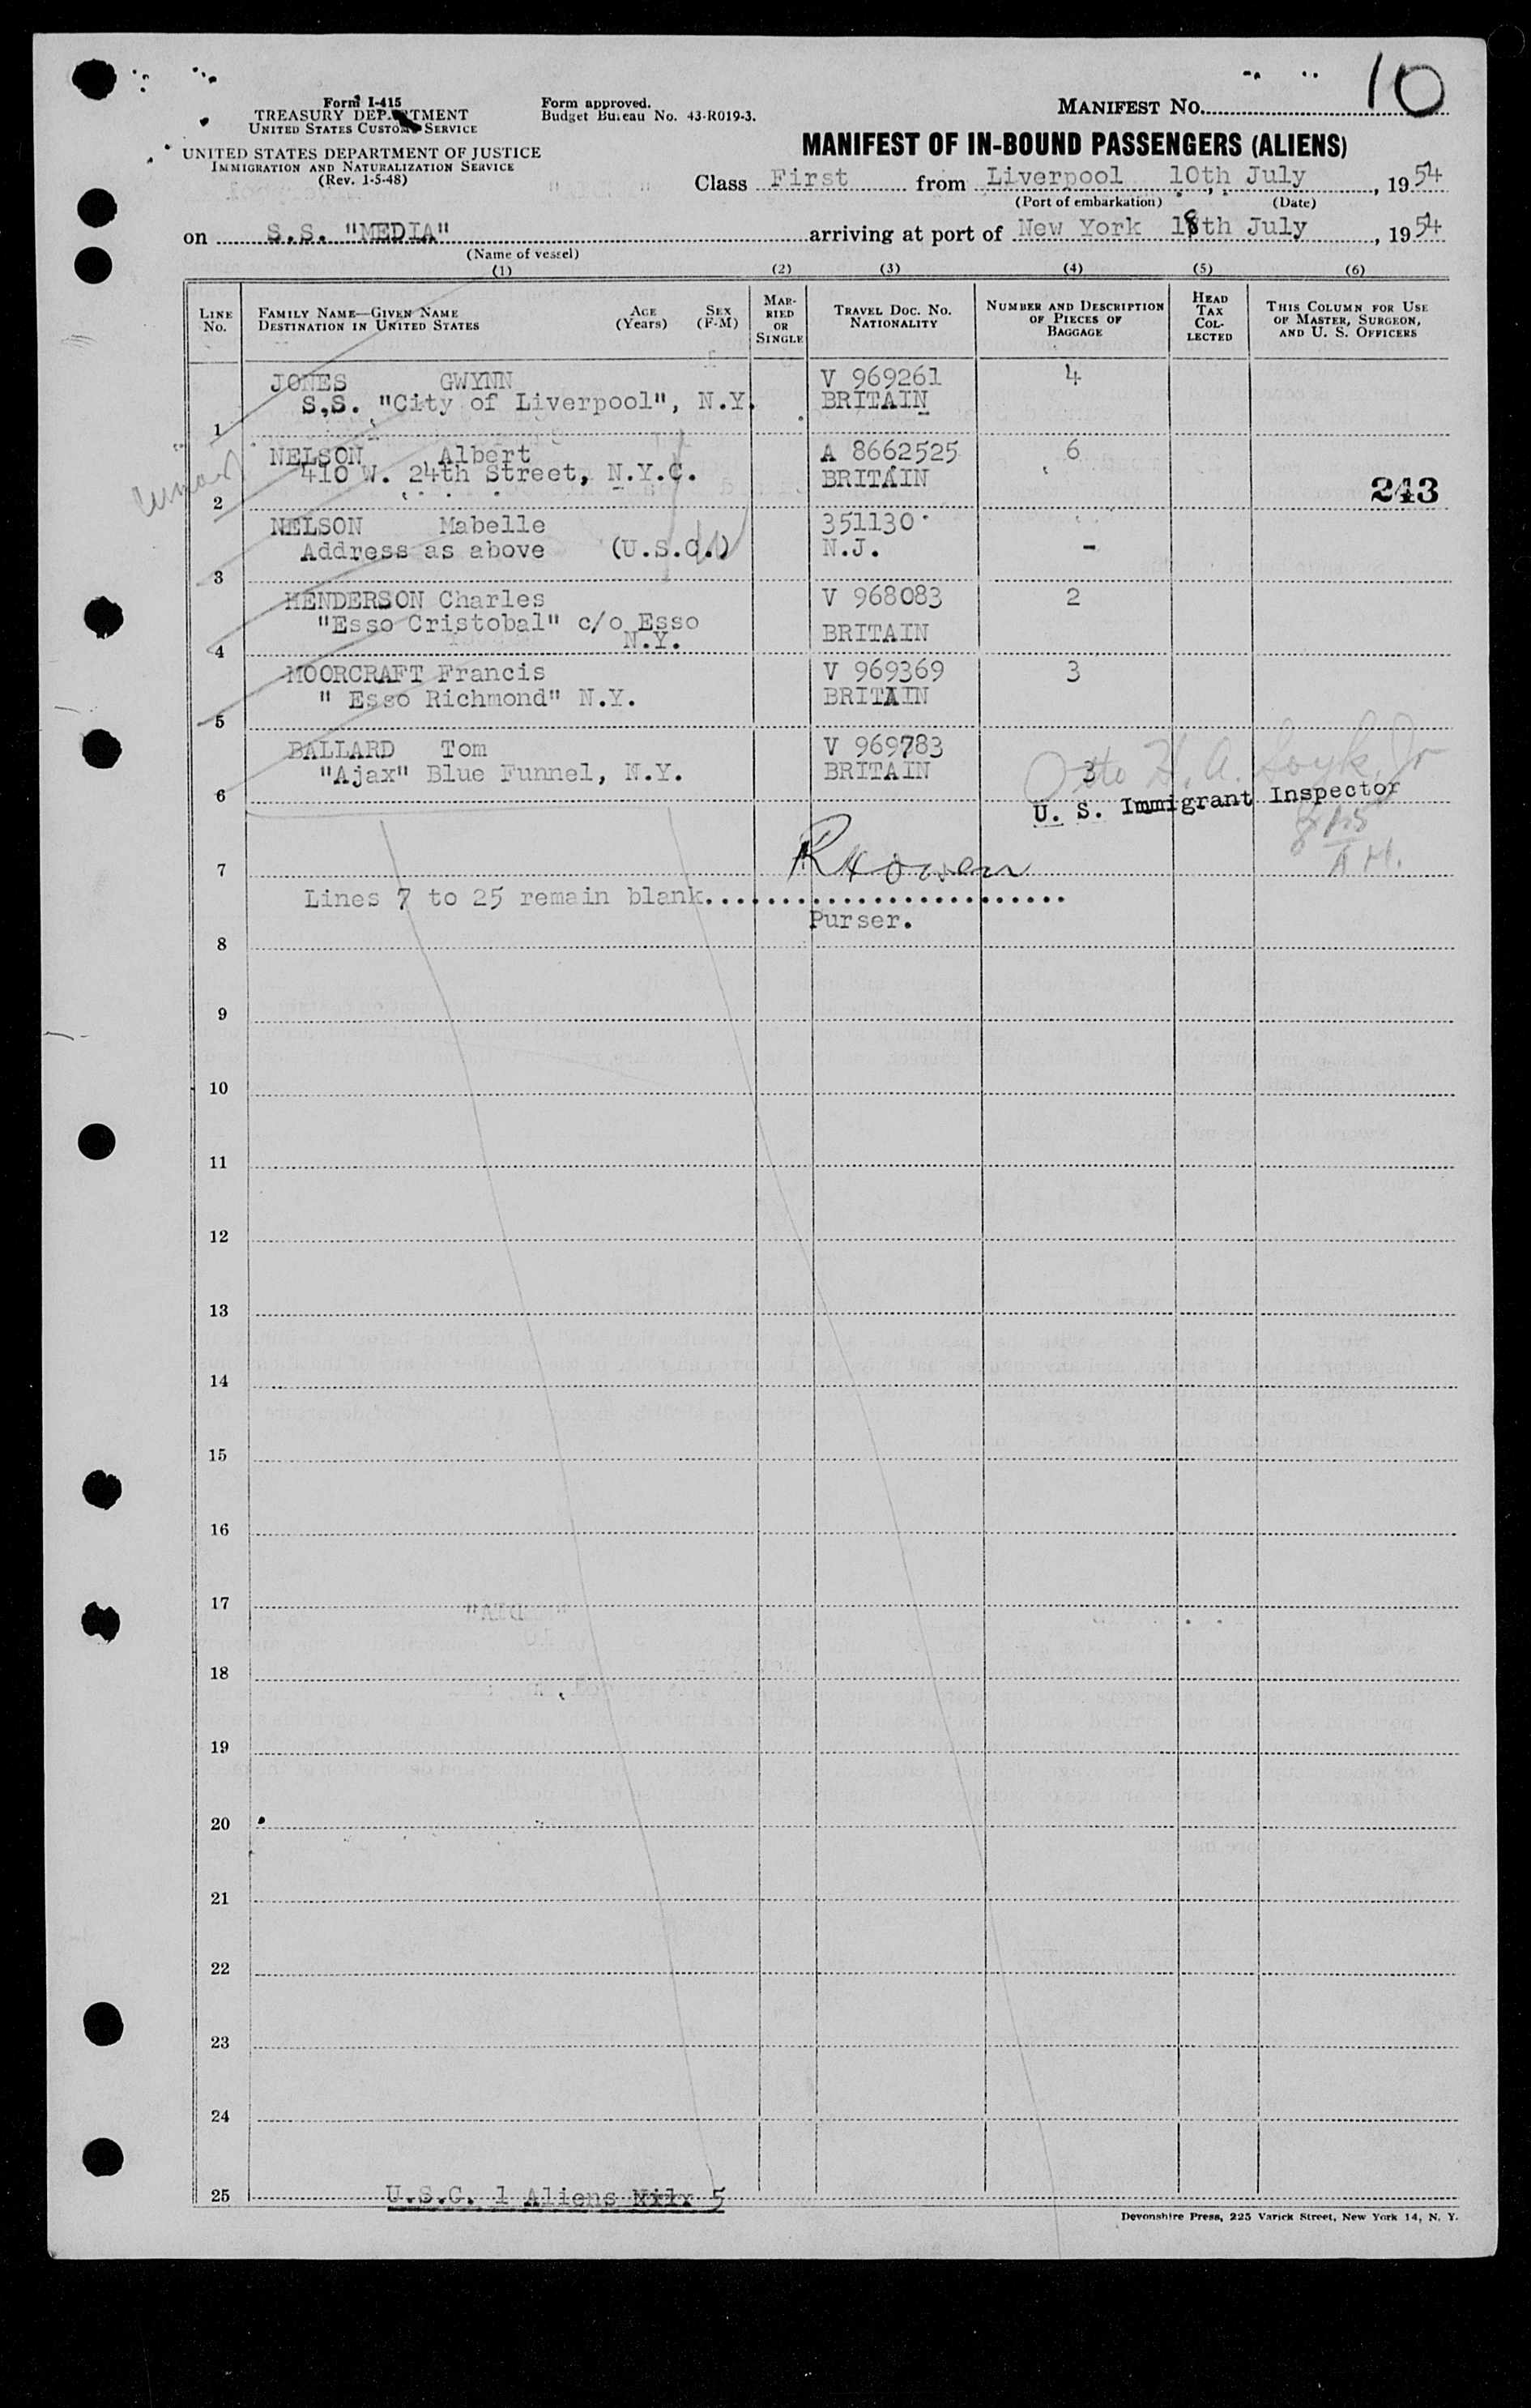 Form I-415
TREASURY DEPARTMENT
UNITED STATES CUSTOMS SERVICE
UNITED STATES DEPARTMENT OF JUSTICE
IMMIGRATION AND NATURALIZATION SERVICE
(Rev. 1-5-48)
Form approved.
Budget Bureau No. 43-R019-3.
MANIFEST NO. 10
MANIFEST OF IN-BOUND PASSENGERS (ALIENS)
Class First from Liverpool 10th July, 1954
(Port of embarkation) (Date)
on S.S. "MEDIA" arriving at port of New York 18th July, 1954
(Name of vessel)
(1) (2) (3) (4) (5) (6)
LINE NO.
FAMILY NAME—GIVEN NAME
DESTINATION IN UNITED STATES
AGE (Years)
SEX (F-M)
MARRIED OR SINGLE
TRAVEL DOC. NO.
NATIONALITY
NUMBER AND DESCRIPTION OF PIECES OF BAGGAGE
HEAD TAX COLLECTED
THIS COLUMN FOR USE OF MASTER, SURGEON, AND U. S. OFFICERS
JONES GWYNN V 969261 4
1 S.S. "City of Liverpool", N.Y. BRITAIN
NELSON Albert A 8662525 6
2 410 W. 24th Street, N.Y.C. BRITAIN
243
NELSON Mabelle 351130
3 Address as above (U.S.C.) N.J. -
HENDERSON Charles V 968083 2
"Esso Cristobal" c/o Esso
4 N.Y. BRITAIN
MOORCRAFT Francis V 969369 3
5 " Esso Richmond" N.Y. BRITAIN
BALLARD Tom V 969783
6 "Ajax" Blue Funnel, N.Y. BRITAIN 3
Otto H. A. Jr
U. S. Immigrant Inspector
7
Lines 7 to 25 remain blank........................
Purser.
8
9
10
11
12
13
14
15
16
17
18
19
20
21
22
23
24
25 U.S.C. 1 Aliens 5
Devonshire Press, 225 Varick Street, New York 14, N. Y.